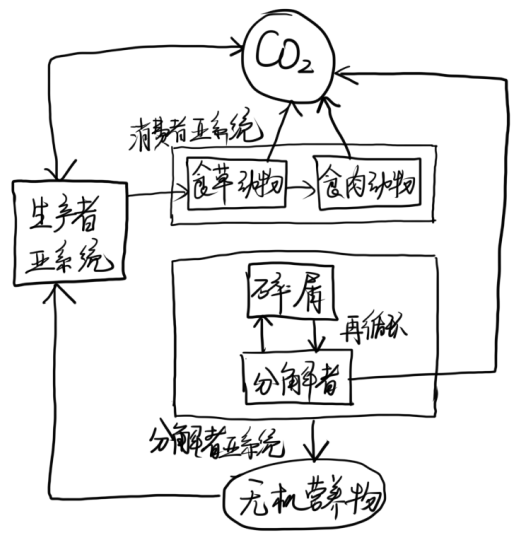 CO₂
消费者亚系统
食草动物
食肉动物
生产者
亚系统
碎屑
再循环
分解者
分解者亚系统
无机营养物